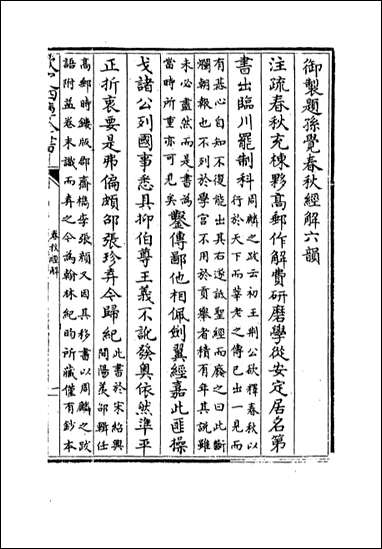 御製題孫覺春秋經解六韻
注疏春秋充棟夥高郵作解費研磨學從安定居名第
書出臨川罷制科
周麟之跋云初王荆公欲釋春秋以
行於天下而莘老之傳已出一見而
有惎心自知不復能出其右遂詆聖經而廢之曰此斷
爛朝報也不列於學官不用於貢舉者積有年其說雖
未必盡然而是書為
當時所重亦可見矣
鑿傳鄙他相佩劍翼經嘉此匪操
戈諸公列國事悉具抑伯尊王義不訛發奥依然準平
正折衷要是弗偏頗邵張珍弆今歸紀
此書於宋紹興
間陽羨邵輯任
高郵時鏤版郡齋檇李張顏又因其移書以周麟之跋
語附益卷末識而弆之今為翰林紀昀所藏僅有鈔本
春秋經解
一